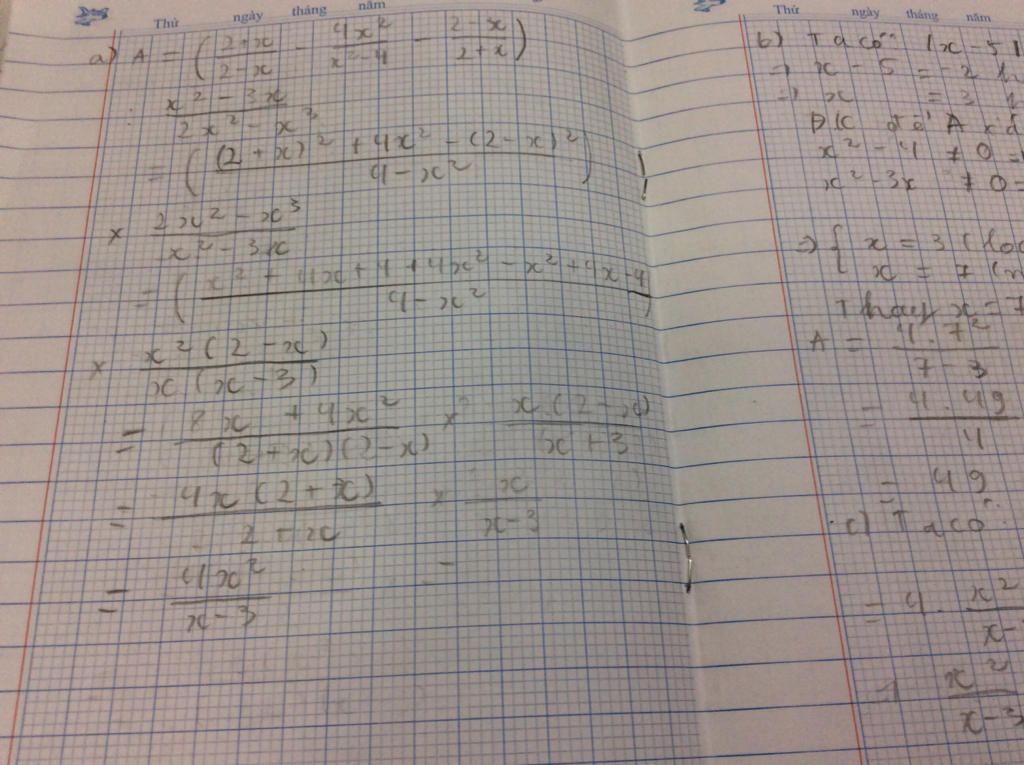 Thứ ngày tháng năm
a) A = ( \frac{2+x}{2-x} - \frac{4x^2}{x^2-4} - \frac{2-x}{2+x} )
: \frac{x^2-3x}{2x^2-x^3}
= ( \frac{(2+x)^2+4x^2-(2-x)^2}{4-x^2} )
x \frac{2x^2-x^3}{x^2-3x}
= ( \frac{x^2+4x+4+4x^2-x^2+4x-4}{4-x^2} )
x \frac{x^2(2-x)}{x(x-3)}
= \frac{8x+4x^2}{(2+x)(2-x)} x \frac{x(2-x)}{x+3}
= \frac{4x(2+x)}{2+x} x \frac{x}{x-3}
= \frac{4x^2}{x-3}
Thứ ngày tháng năm
b) Ta có |x-5|
→ x - 5 = -2
→ x = 3
ĐK để A
x^2 - 4 ≠ 0
x^2 - 3x ≠ 0
⇒ { x = 3 (
x = 7 (
Thay x = 7
A = \frac{4.7^2}{7-3}
= \frac{4.49}{4}
= 49
c) Ta có
= 4. \frac{x^2}{x-}
→ \frac{x^2}{x-3}